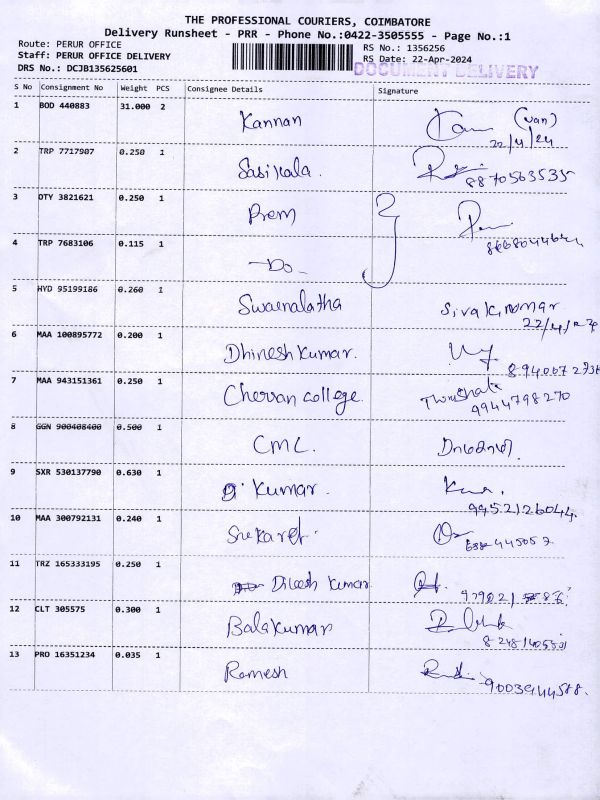 THE PROFESSIONAL COURIERS, COIMBATORE
Delivery Runsheet - PRR - Phone No.:0422-3505555 - Page No.:1
Route: PERUR OFFICE
RS No.: 1356256
Staff: PERUR OFFICE DELIVERY
RS Date: 22-Apr-2024
DRS No.: DCJB135625601
DOCUMENT DELIVERY
S No Consignment No Weight PCS Consignee Details Signature
1 BOD 440883 31.000 2 Kannan (van)
22/4/24
2 TRP 7717907 0.250 1 Sasikala.
8870563535
3 DTY 3821621 0.250 1 Prem
4 TRP 7683106 0.115 1 -Do-
5 HYD 95199186 0.260 1 Swarnalatha
22/4/24
6 MAA 100895772 0.200 1 Dhinesh kumar.
7 MAA 943151361 0.250 1 Cheran college
9944798270
8 GGN 900408400 0.500 1 CMC.
9 SXR 530137790 0.630 1 kumar.
9952126044.
10 MAA 300792131 0.240 1
11 TRZ 165333195 0.250 1 Dilesh kumar
12 CLT 305575 0.300 1 Balakumar
13 PRO 16351234 0.035 1 Ramesh
9003944588.